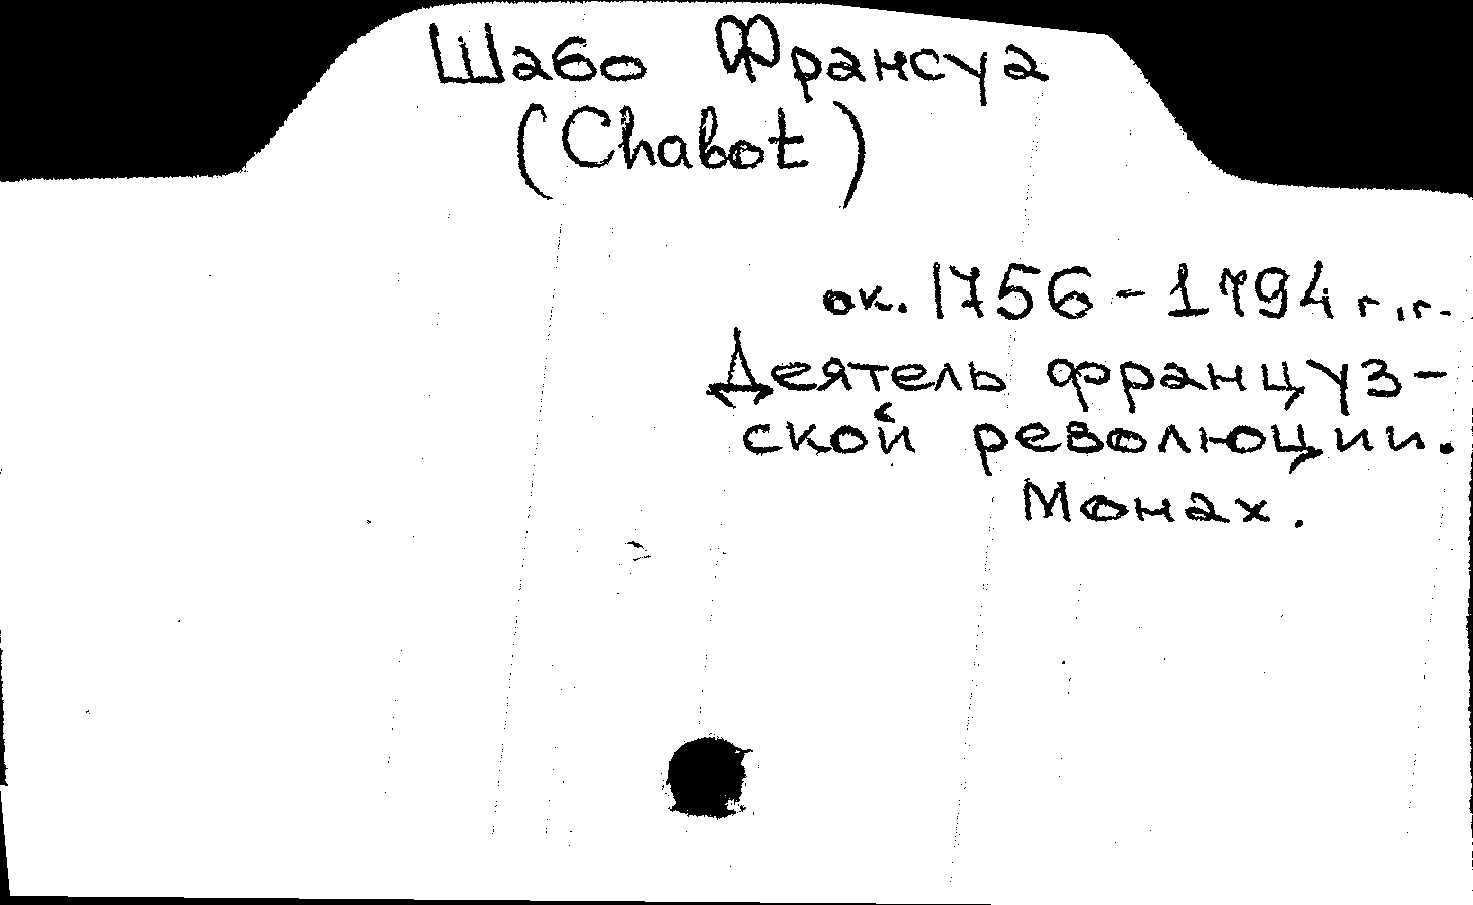 Шабо Франсуа
(Chabot)
ок. 1756-1794 г.г.
Деятель француз-
ской революции.
Монах.